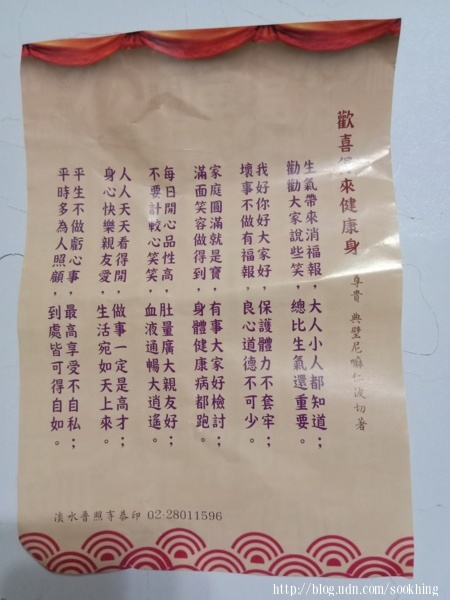 歡喜得來健康身
尊貴 典璧尼嘛仁波切著
生氣帶來消福報，大人小人都知道；
勸勸大家說些笑，總比生氣還重要。
我好你好大家好，保護體力不套牢；
壞事不做有福報，良心道德不可少。
家庭圓滿就是寶，有事大家好檢討；
滿面笑容做得到，身體健康病都跑。
每日開心品性高，肚量廣大親友好；
不要計較心笑笑，血液通暢大逍遙。
人人天天看得開，做事一定是高才；
身心快樂親友愛，生活宛如天上來。
平生不做虧心事，最高享受不自私；
平時多為人照顧，到處皆可得自如。
淡水普照寺恭印 02-28011596
http://blog.udn.com/sookhing